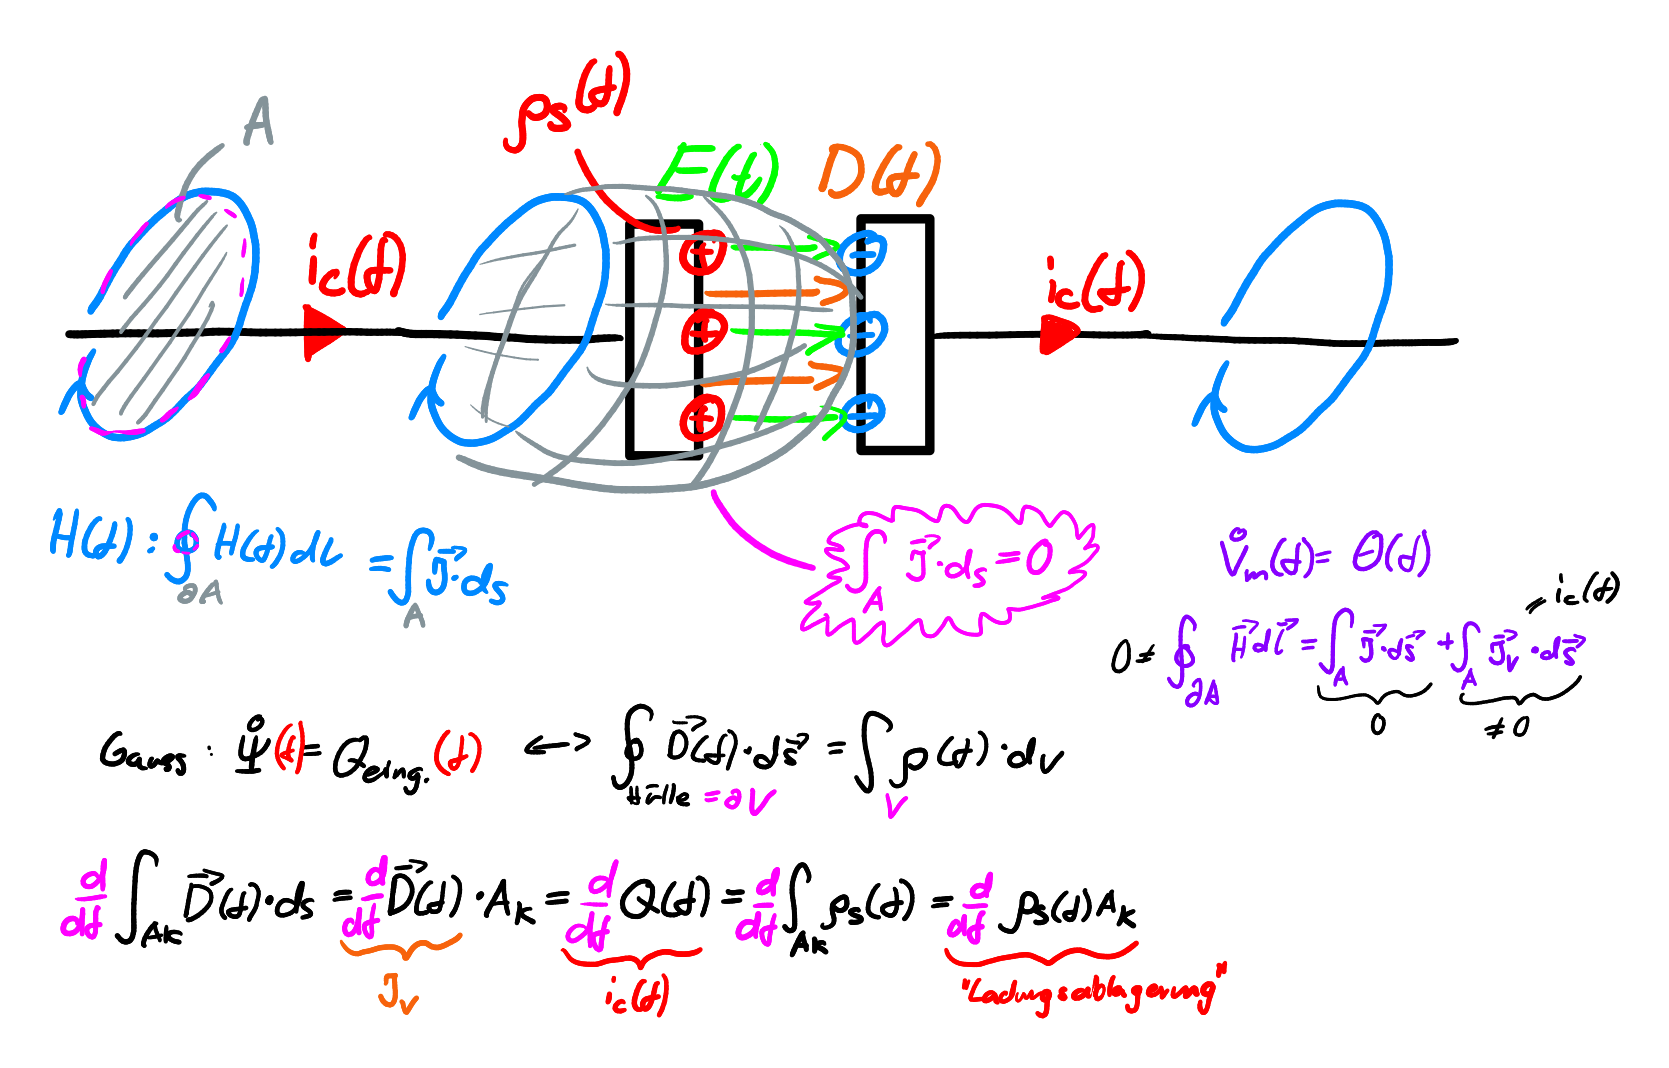 A
ρs(t)
E(t)
D(t)
ic(t)
ic(t)
+
−
+
−
+
−
H(t) : ∮∂A H(t) dl = ∫A J⃗·ds
∫A J⃗·ds = 0
V̊m(t) = Θ(t)
= ic(t)
0 ≠ ∮∂A H⃗ dl⃗ = ∫A J⃗·ds⃗ + ∫A J⃗v·ds⃗
0
≠ 0
Gauss : Ψ̊(t) = Qeing.(t) ⟷ ∮Hülle = ∂V D⃗(t)·ds⃗ = ∫V ρ(t)·dv
d/dt ∫Ak D⃗(t)·ds = d/dt D⃗(t)·Ak = d/dt Q(t) = d/dt ∫Ak ρs(t) = d/dt ρs(t) Ak
Jv
ic(t)
"Ladungsablagerung"